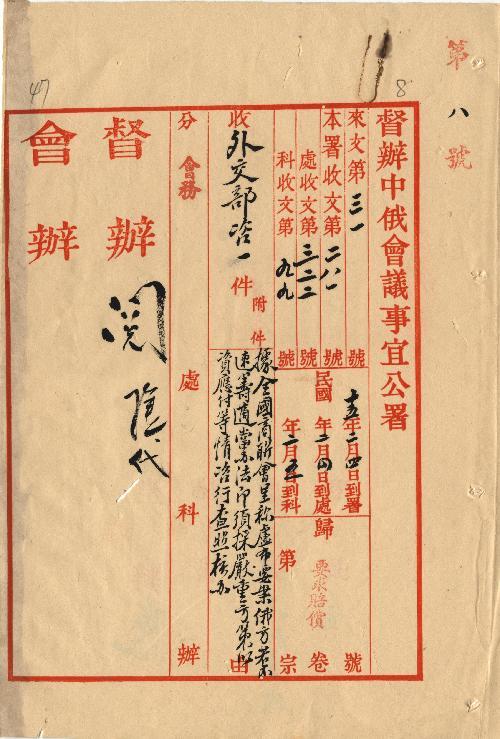 第八號
8
47
督辦中俄會議事宜公署
來文第三一號
本署收文第二八一號
處收文第三二二號
科收文第九九號
十五年二月四日到署
民國 年二月四日到處
年二月五日到科
歸第 宗卷 號
要求賠償
收外交部咨一件 附件
據全國商聯會呈稱盧布要案俄方若不
速籌適當辦法即須採嚴重方策以
資應付等情咨行查照核辦
由
分會務處 科 辦
督辦
會辦
閱
代